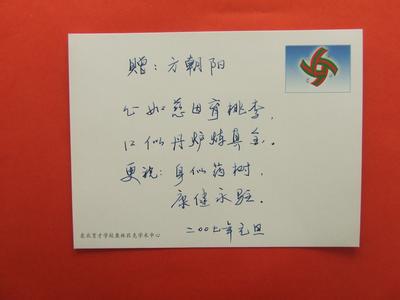 赠：方朝阳
心如慈田育桃李，
口似丹炉炼真金。
更祝：身似药树，
康健永驻．
二〇〇七年元旦
东北育才学校奥林匹克学术中心